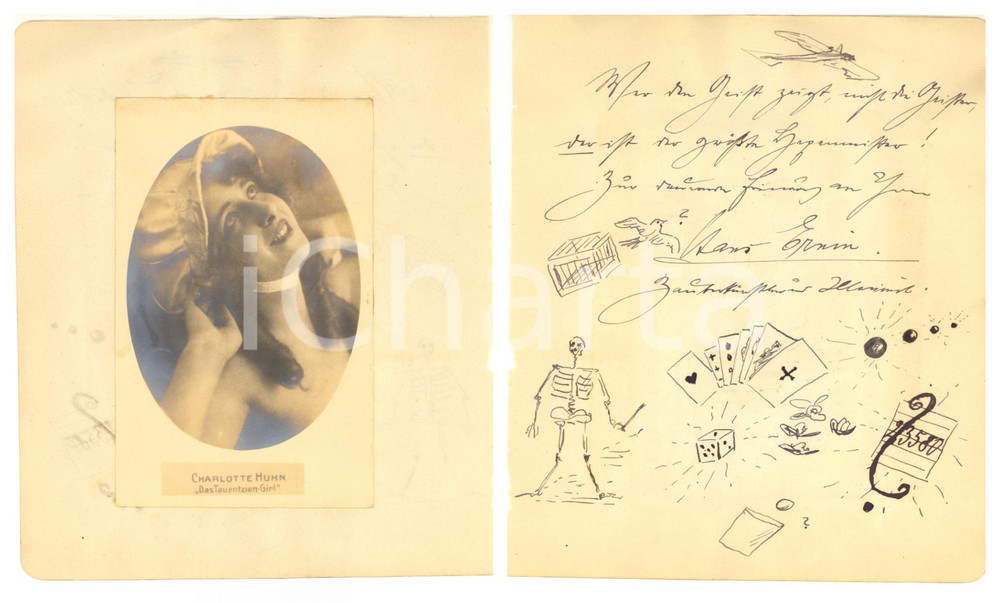 CHARLOTTE HUHN
„Das Tauentzien-Girl"
Wer den Geist zeigt, nicht die Geister,
der ist der größte Hexenmeister!
Zur dauernden Erinnerung an Ihren
?
Hans Erwin.
Zauberkünstler und
43580
?
iCharta